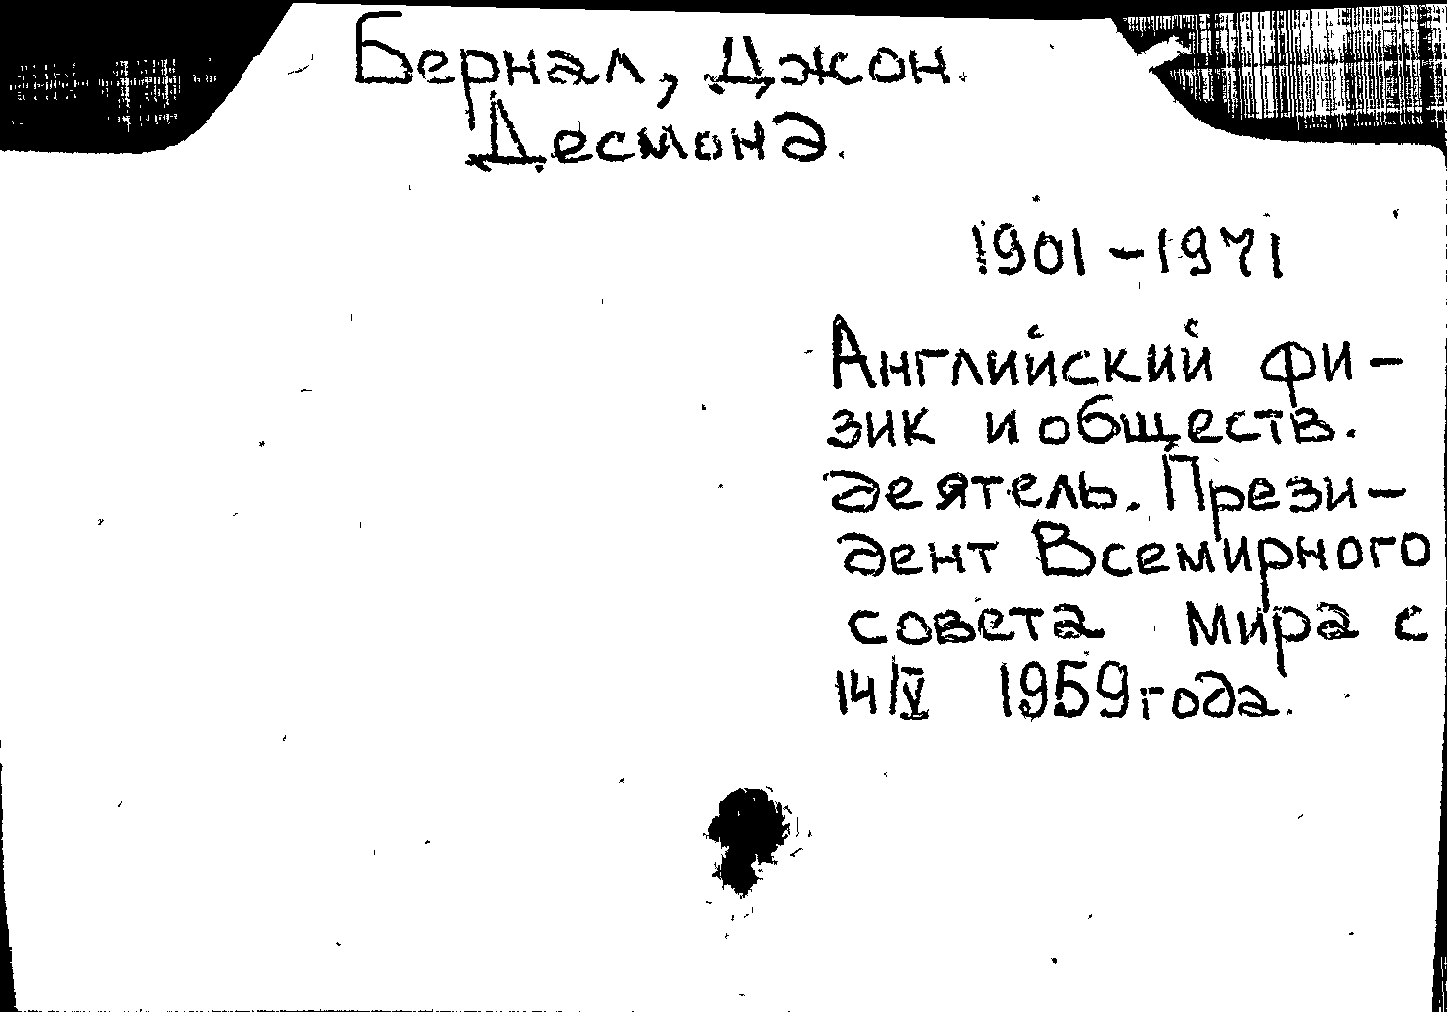 Бернал, Джон
Десмонд.
1901-1971
Английский фи-
зик и обществ.
деятель. Прези-
дент Всемирного
совета мира с
14/V 1959 года.